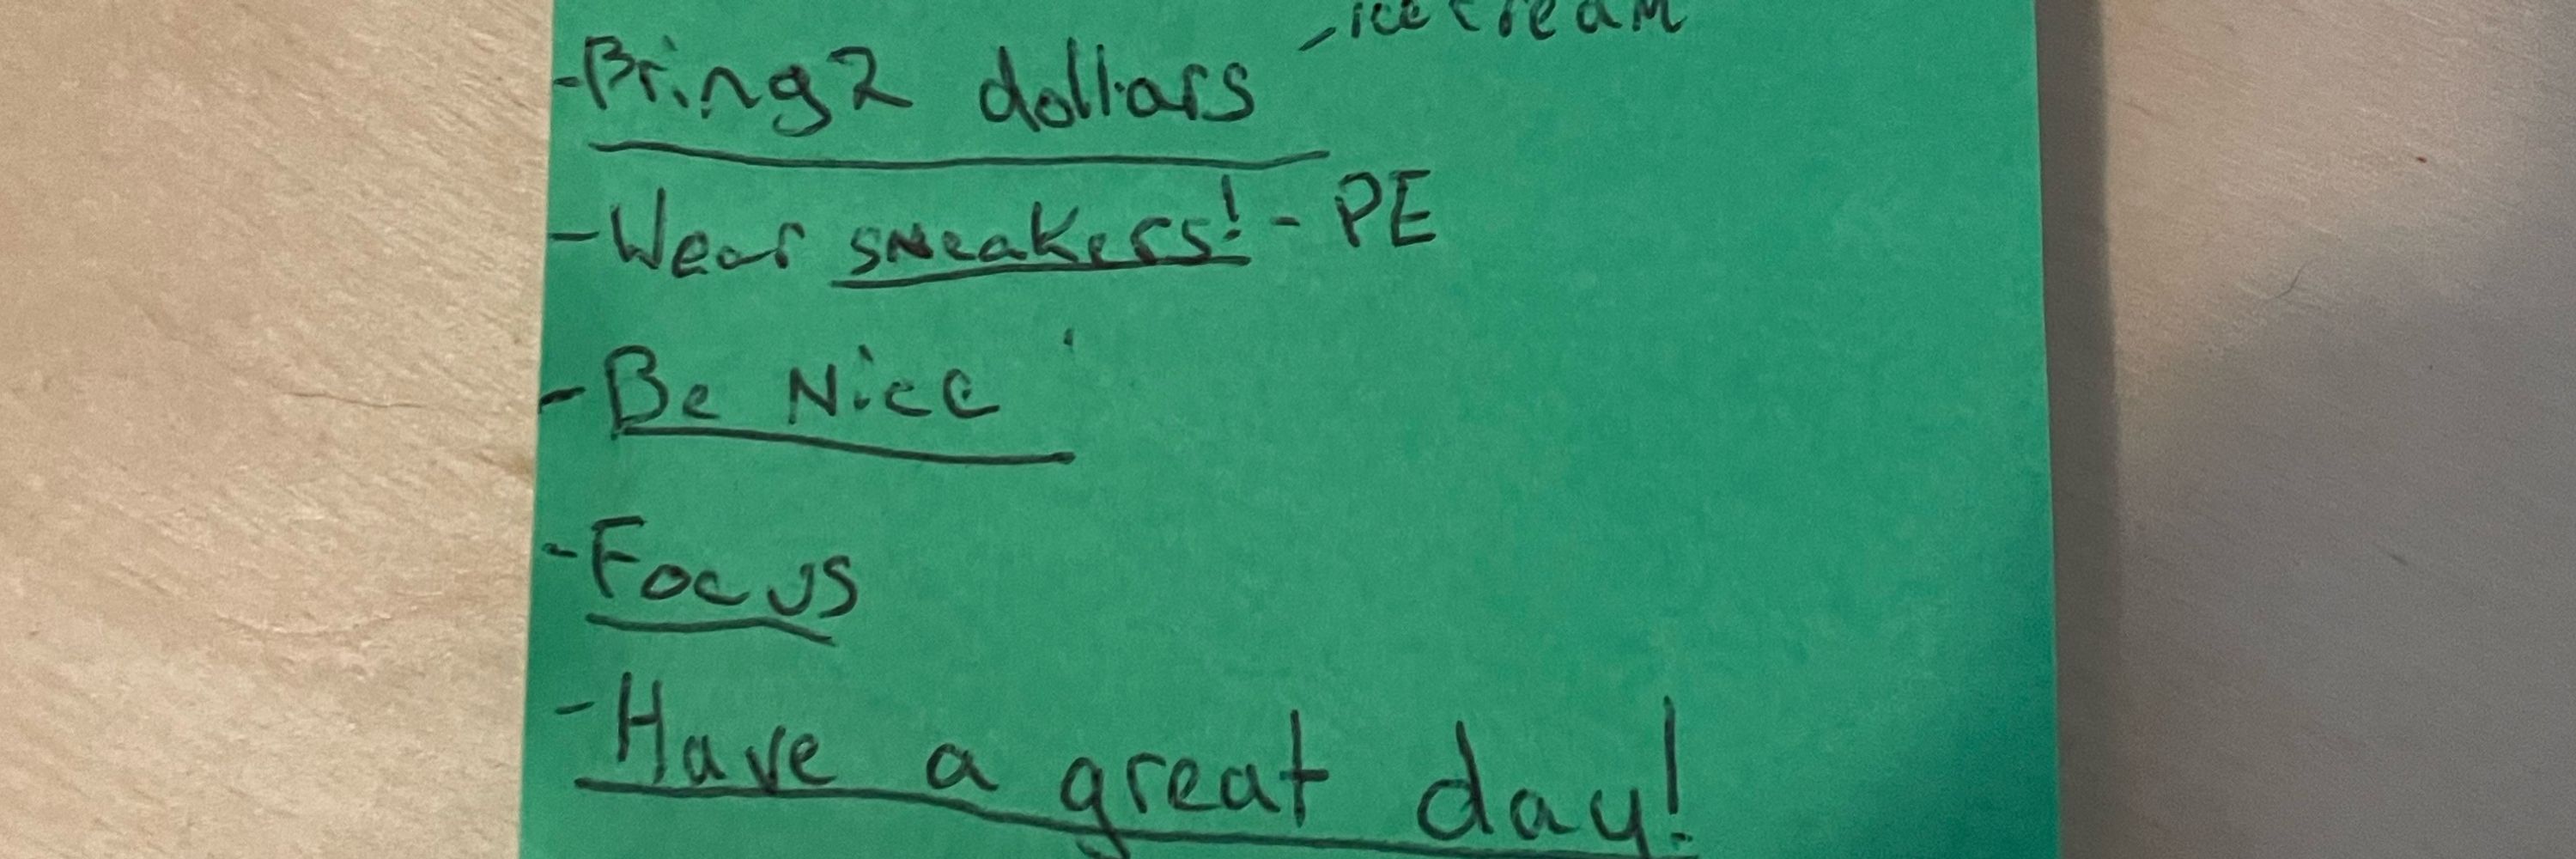 -Bring 2 dollars -ice cream
-Wear sneakers! - PE
-Be Nice
-Focus
-Have a great day!